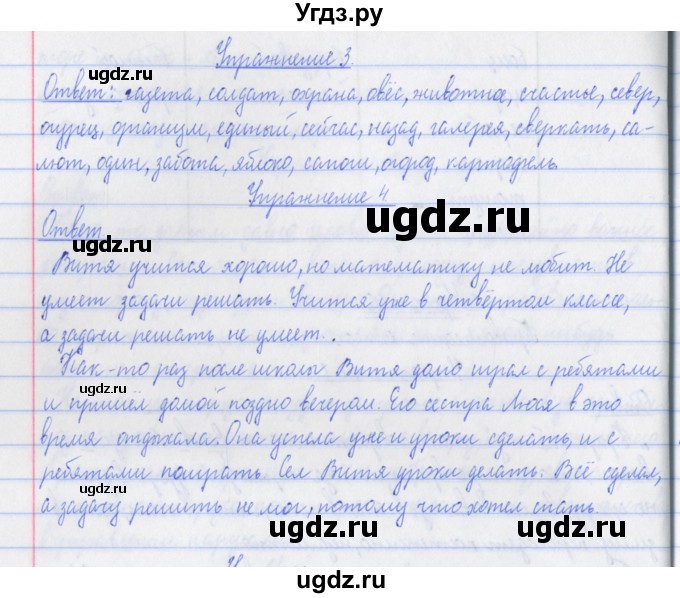 Угдз.ру
Упражнение 3.
Ответ: газета, солдат, охрана, овёс, животное, счастье, север,
огурец, организм, единый, сейчас, назад, галерея, сверкать, са-
лют, один, забота, яблоко, сапоги, огород, картофель.
Упражнение 4.
ugdz.ru
Ответ
ugdz.ru
Витя учится хорошо, но математику не любит. Не
умеет задачи решать. Учится уже в четвёртом классе,
а задачи решать не умеет. .
Как-то раз после школы Витя долго играл с ребятами
ugdz.ru
и пришёл домой поздно вечером. Его сестра Люся в это
время отдыхала. Она успела уже и уроки сделать, и с
ребятами поиграть. Сел Витя уроки делать. Всё сделал,
а задачу решить не мог, потому что хотел спать.
ugdz.ru ugdz.ru
ugdz.ru